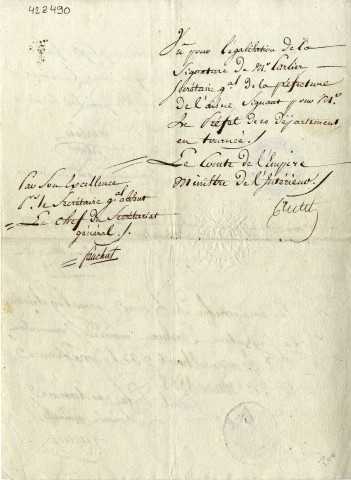 428490
Vu pour légalisation de la
Signature de Mr. Carlier
Secrétaire gal. de la préfecture
de l'aisne, Signant pour Mr.
Le Préfet de ce Département
en tournée./.
Le Comte de l'Empire
Ministre de l'Intérieur./.
Cretet
Par Son Excellence
Pr. le Secrétaire gal. absent
Le chef du Secrétariat
général./.
Fauchat